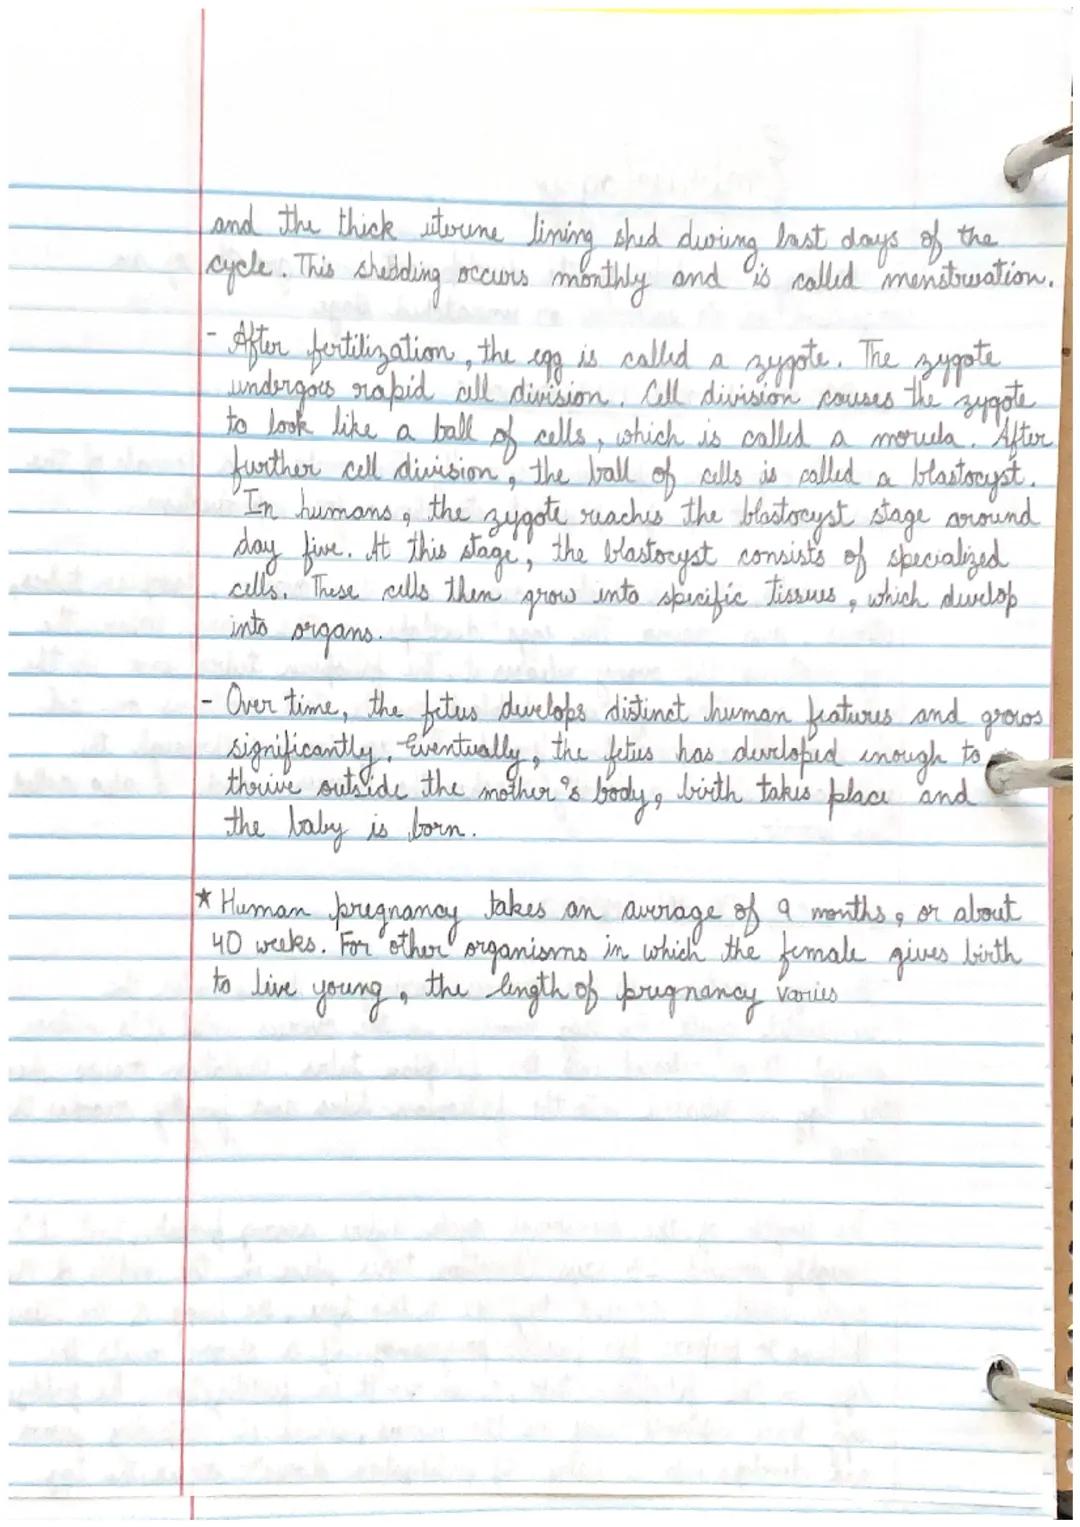 and the thick uterine lining shed during last days of the
cycle. This shedding occurs monthly and is called menstruation.
- After fertilization, the egg is called a zygote. The zygote
undergoes rapid cell division. Cell division causes the zygote
to look like a ball of cells, which is called a morula. After
further cell division, the ball of cells is called a blastocyst.
In humans, the zygote reaches the blastocyst stage around
day five. At this stage, the blastocyst consists of specialized
cells. These cells then grow into specific tissues, which develop
into organs.
- Over time, the fetus develops distinct human features and grows
significantly. Eventually, the fetus has developed enough to
thrive outside the mother's body, birth takes place and
the baby is born.
★ Human pregnancy takes an average of 9 months, or about
40 weeks. For other organisms in which the female gives birth
to live young, the length of pregnancy varies